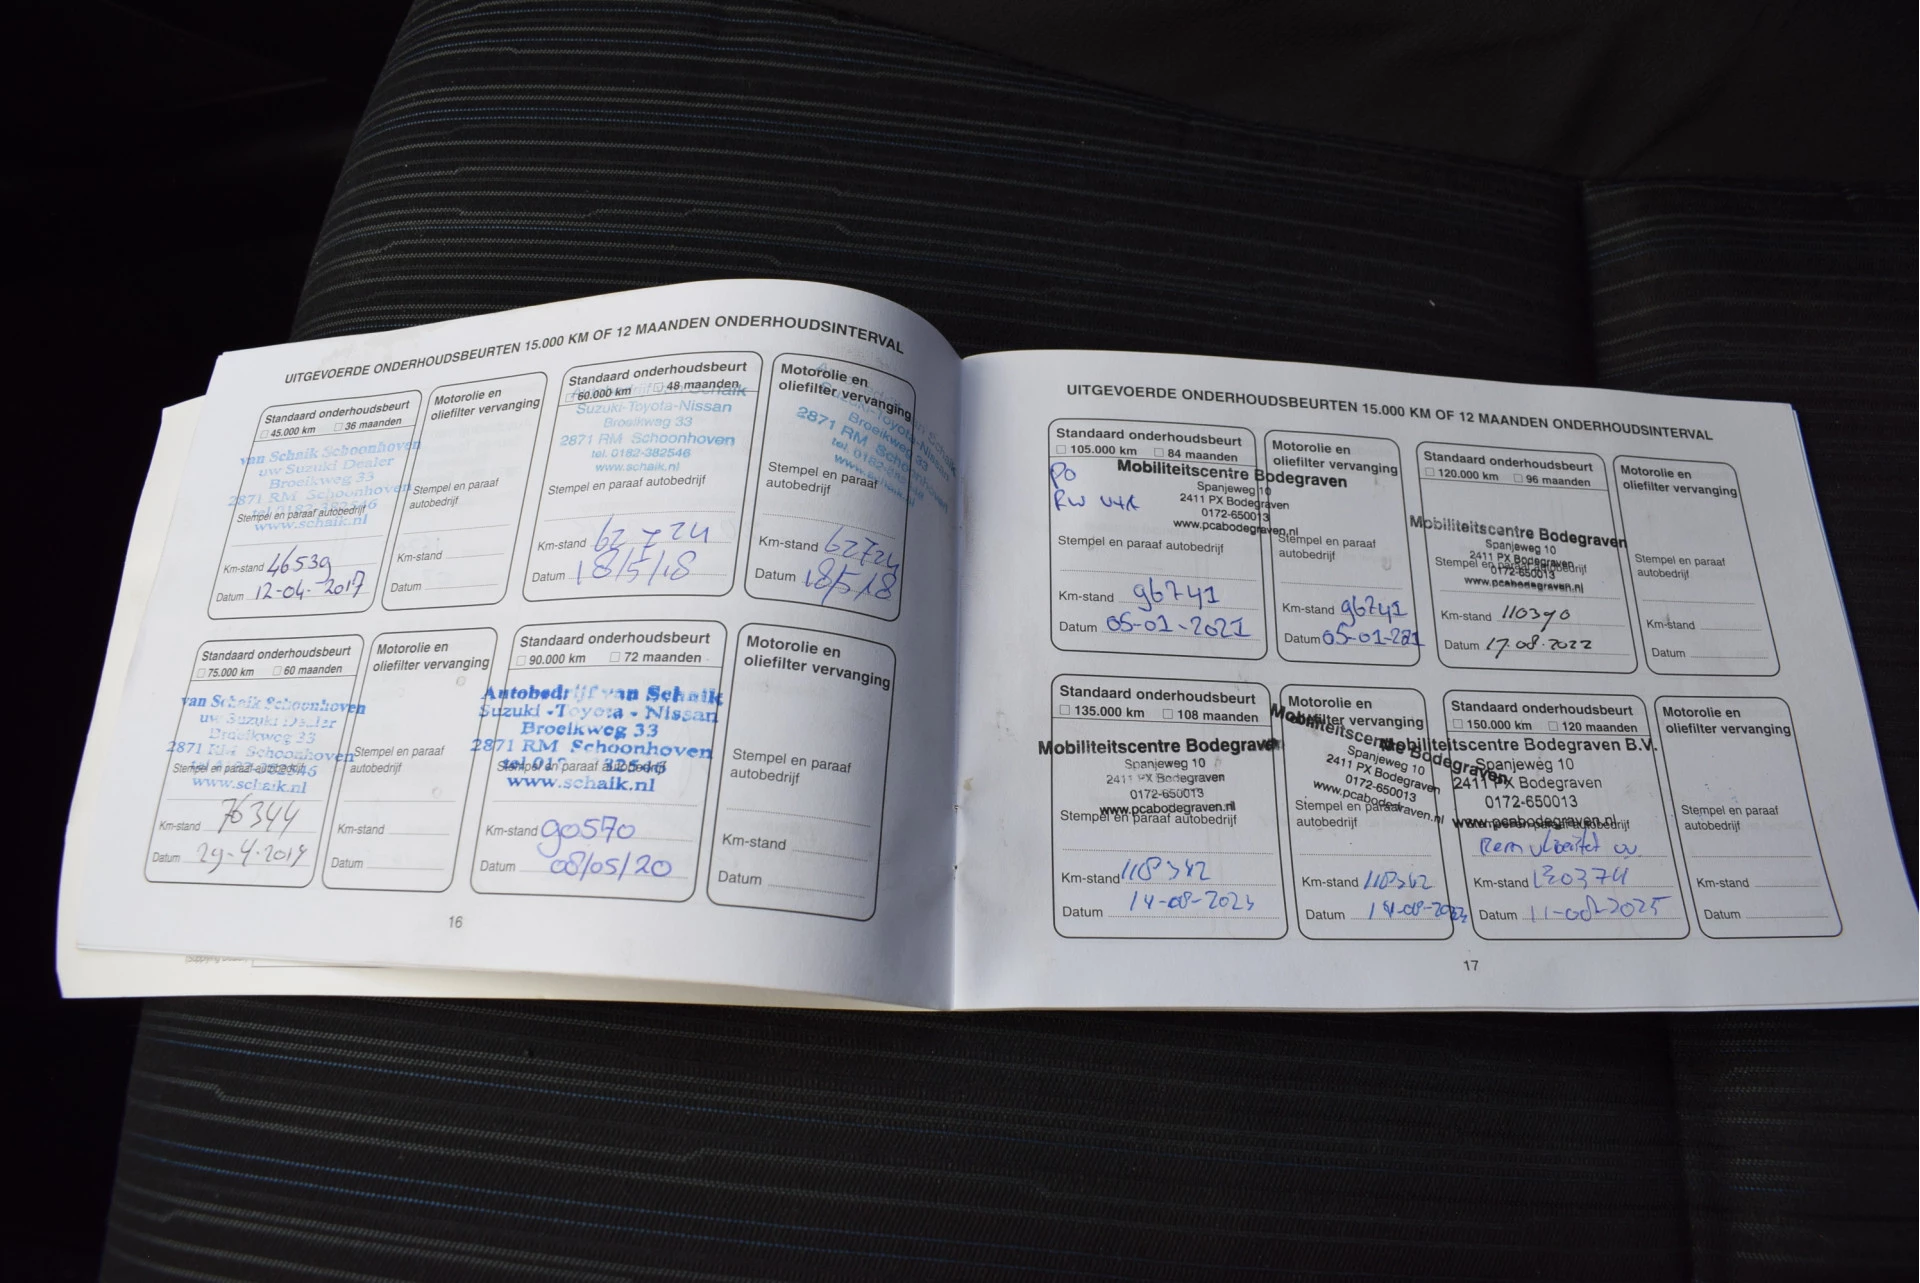 UITGEVOERDE ONDERHOUDSBEURTEN 15.000 KM OF 12 MAANDEN ONDERHOUDSINTERVAL
Standaard onderhoudsbeurt
45.000 km 36 maanden
van Schaik Schoonhoven
uw Suzuki Dealer
Broeikweg 33
2871 RM Schoonhoven
tel. 0182-382546
Stempel en paraaf autobedrijf
www.schaik.nl
Km-stand 46539
Datum 12-04-2017
Motorolie en
oliefilter vervanging
Stempel en paraaf
autobedrijf
Km-stand
Datum
Standaard onderhoudsbeurt
60.000 km 48 maanden
Autobedrijf van Schaik
Suzuki-Toyota-Nissan
Broeikweg 33
2871 RM Schoonhoven
tel. 0182-382546
www.schaik.nl
Stempel en paraaf autobedrijf
Km-stand 62724
Datum 18/5/18
Motorolie en
oliefilter vervanging
Suzuki-Toyota-Nissan
Broeikweg 33
2871 RM Schoonhoven
tel. 0182-382546
www.schaik.nl
Stempel en paraaf
autobedrijf
Km-stand 62724
Datum 18/5/18
Standaard onderhoudsbeurt
75.000 km 60 maanden
van Schaik Schoonhoven
uw Suzuki Dealer
Broeikweg 33
2871 RM Schoonhoven
Stempel en paraaf autobedrijf
www.schaik.nl
Km-stand 76344
Datum 29-4-2019
Motorolie en
oliefilter vervanging
Stempel en paraaf
autobedrijf
Km-stand
Datum
Standaard onderhoudsbeurt
90.000 km 72 maanden
Autobedrijf van Schaik
Suzuki - Toyota - Nissan
Broeikweg 33
2871 RM Schoonhoven
Stempel en paraaf autobedrijf
www.schaik.nl
Km-stand 90570
Datum 08/05/20
Motorolie en
oliefilter vervanging
Stempel en paraaf
autobedrijf
Km-stand
Datum
16
UITGEVOERDE ONDERHOUDSBEURTEN 15.000 KM OF 12 MAANDEN ONDERHOUDSINTERVAL
Standaard onderhoudsbeurt
105.000 km 84 maanden
PO
Mobiliteitscentre Bodegraven
Spanjeweg 10
2411 PX Bodegraven
0172-650013
www.pcabodegraven.nl
Stempel en paraaf autobedrijf
Km-stand 96741
Datum 05-01-2021
Motorolie en
oliefilter vervanging
Stempel en paraaf
autobedrijf
Km-stand 96741
Datum 05-01-221
Standaard onderhoudsbeurt
120.000 km 96 maanden
Mobiliteitscentre Bodegraven
Spanjeweg 10
2411 PX Bodegraven
Stempel en paraaf autobedrijf
0172-650013
www.pcabodegraven.nl
Km-stand 110390
Datum 17-08-2022
Motorolie en
oliefilter vervanging
Stempel en paraaf
autobedrijf
Km-stand
Datum
Standaard onderhoudsbeurt
135.000 km 108 maanden
Mobiliteitscentre Bodegraven
Spanjeweg 10
2411 PX Bodegraven
0172-650013
www.pcabodegraven.nl
Stempel en paraaf autobedrijf
Km-stand 118342
Datum 14-08-2023
Motorolie en
oliefilter vervanging
Mobiliteitscentre Bodegraven
Spanjeweg 10
2411 PX Bodegraven
0172-650013
www.pcabodegraven.nl
Stempel en paraaf
autobedrijf
Km-stand 118342
Datum 14-08-2023
Standaard onderhoudsbeurt
150.000 km 120 maanden
Mobiliteitscentre Bodegraven B.V.
Spanjeweg 10
2411 PX Bodegraven
0172-650013
www.pcabodegraven.nl
Stempel en paraaf autobedrijf
Km-stand 130374
Datum 11-08-2025
Motorolie en
oliefilter vervanging
Stempel en paraaf
autobedrijf
Km-stand
Datum
17